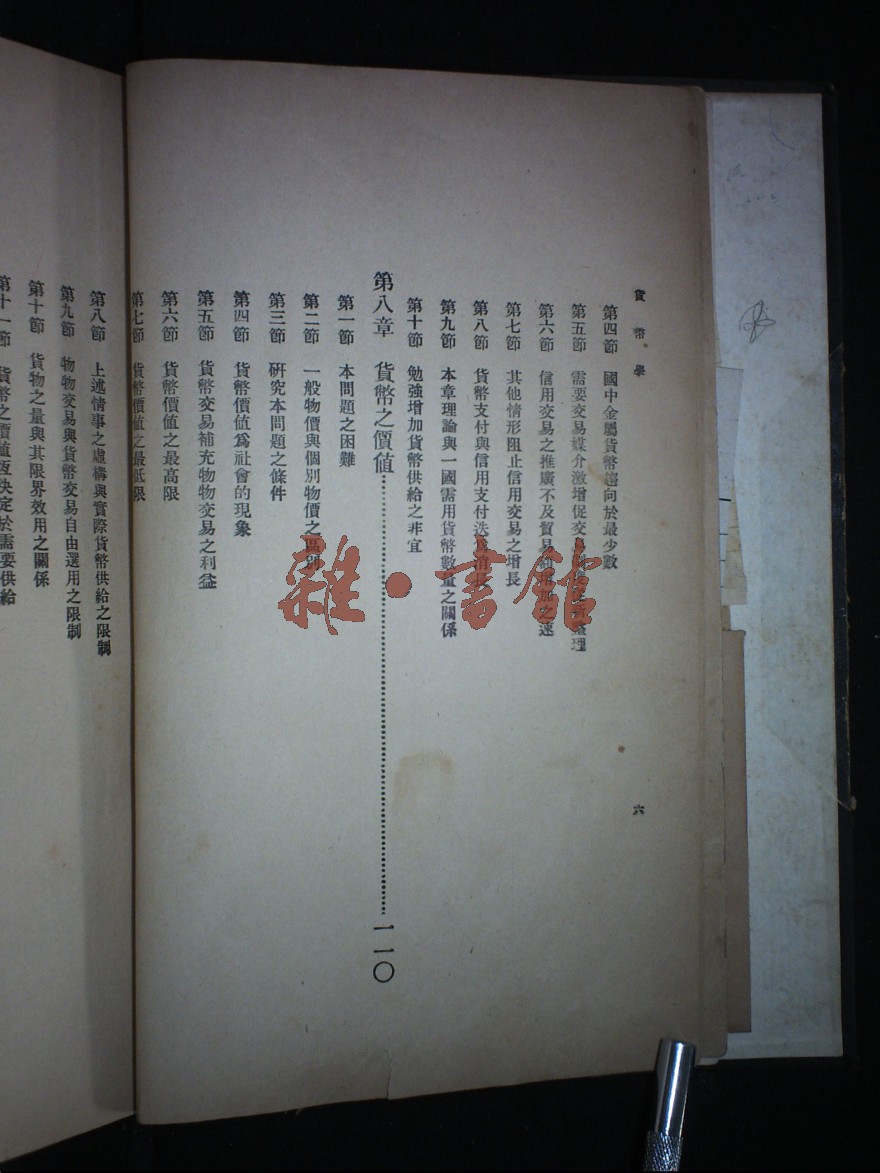 貨幣學
六
第四節 國中金屬貨幣趨向於最少數
第五節 需要交易媒介激增促交易制度
整理
第六節 信用交易之推廣不及貿易額增加之速
第七節 其他情形阻止信用交易之增長
第八節 貨幣支付與信用支付迭爲消長
第九節 本章理論與一國需用貨幣數量之關係
第十節 勉強增加貨幣供給之非宜
第八章 貨幣之價值 一一〇
第一節 本問題之困難
第二節 一般物價與個別物價之區別
第三節 研究本問題之條件
第四節 貨幣價值爲社會的現象
第五節 貨幣交易補充物物交易之利益
第六節 貨幣價值之最高限
第七節 貨幣價值之最低限
第八節 上述情事之虛構與實際貨幣供給之限制
第九節 物物交易與貨幣交易自由選用之限制
第十節 貨物之量與其限界效用之關係
第十一節 貨幣之價值恆決定於需要供給
雜·書館